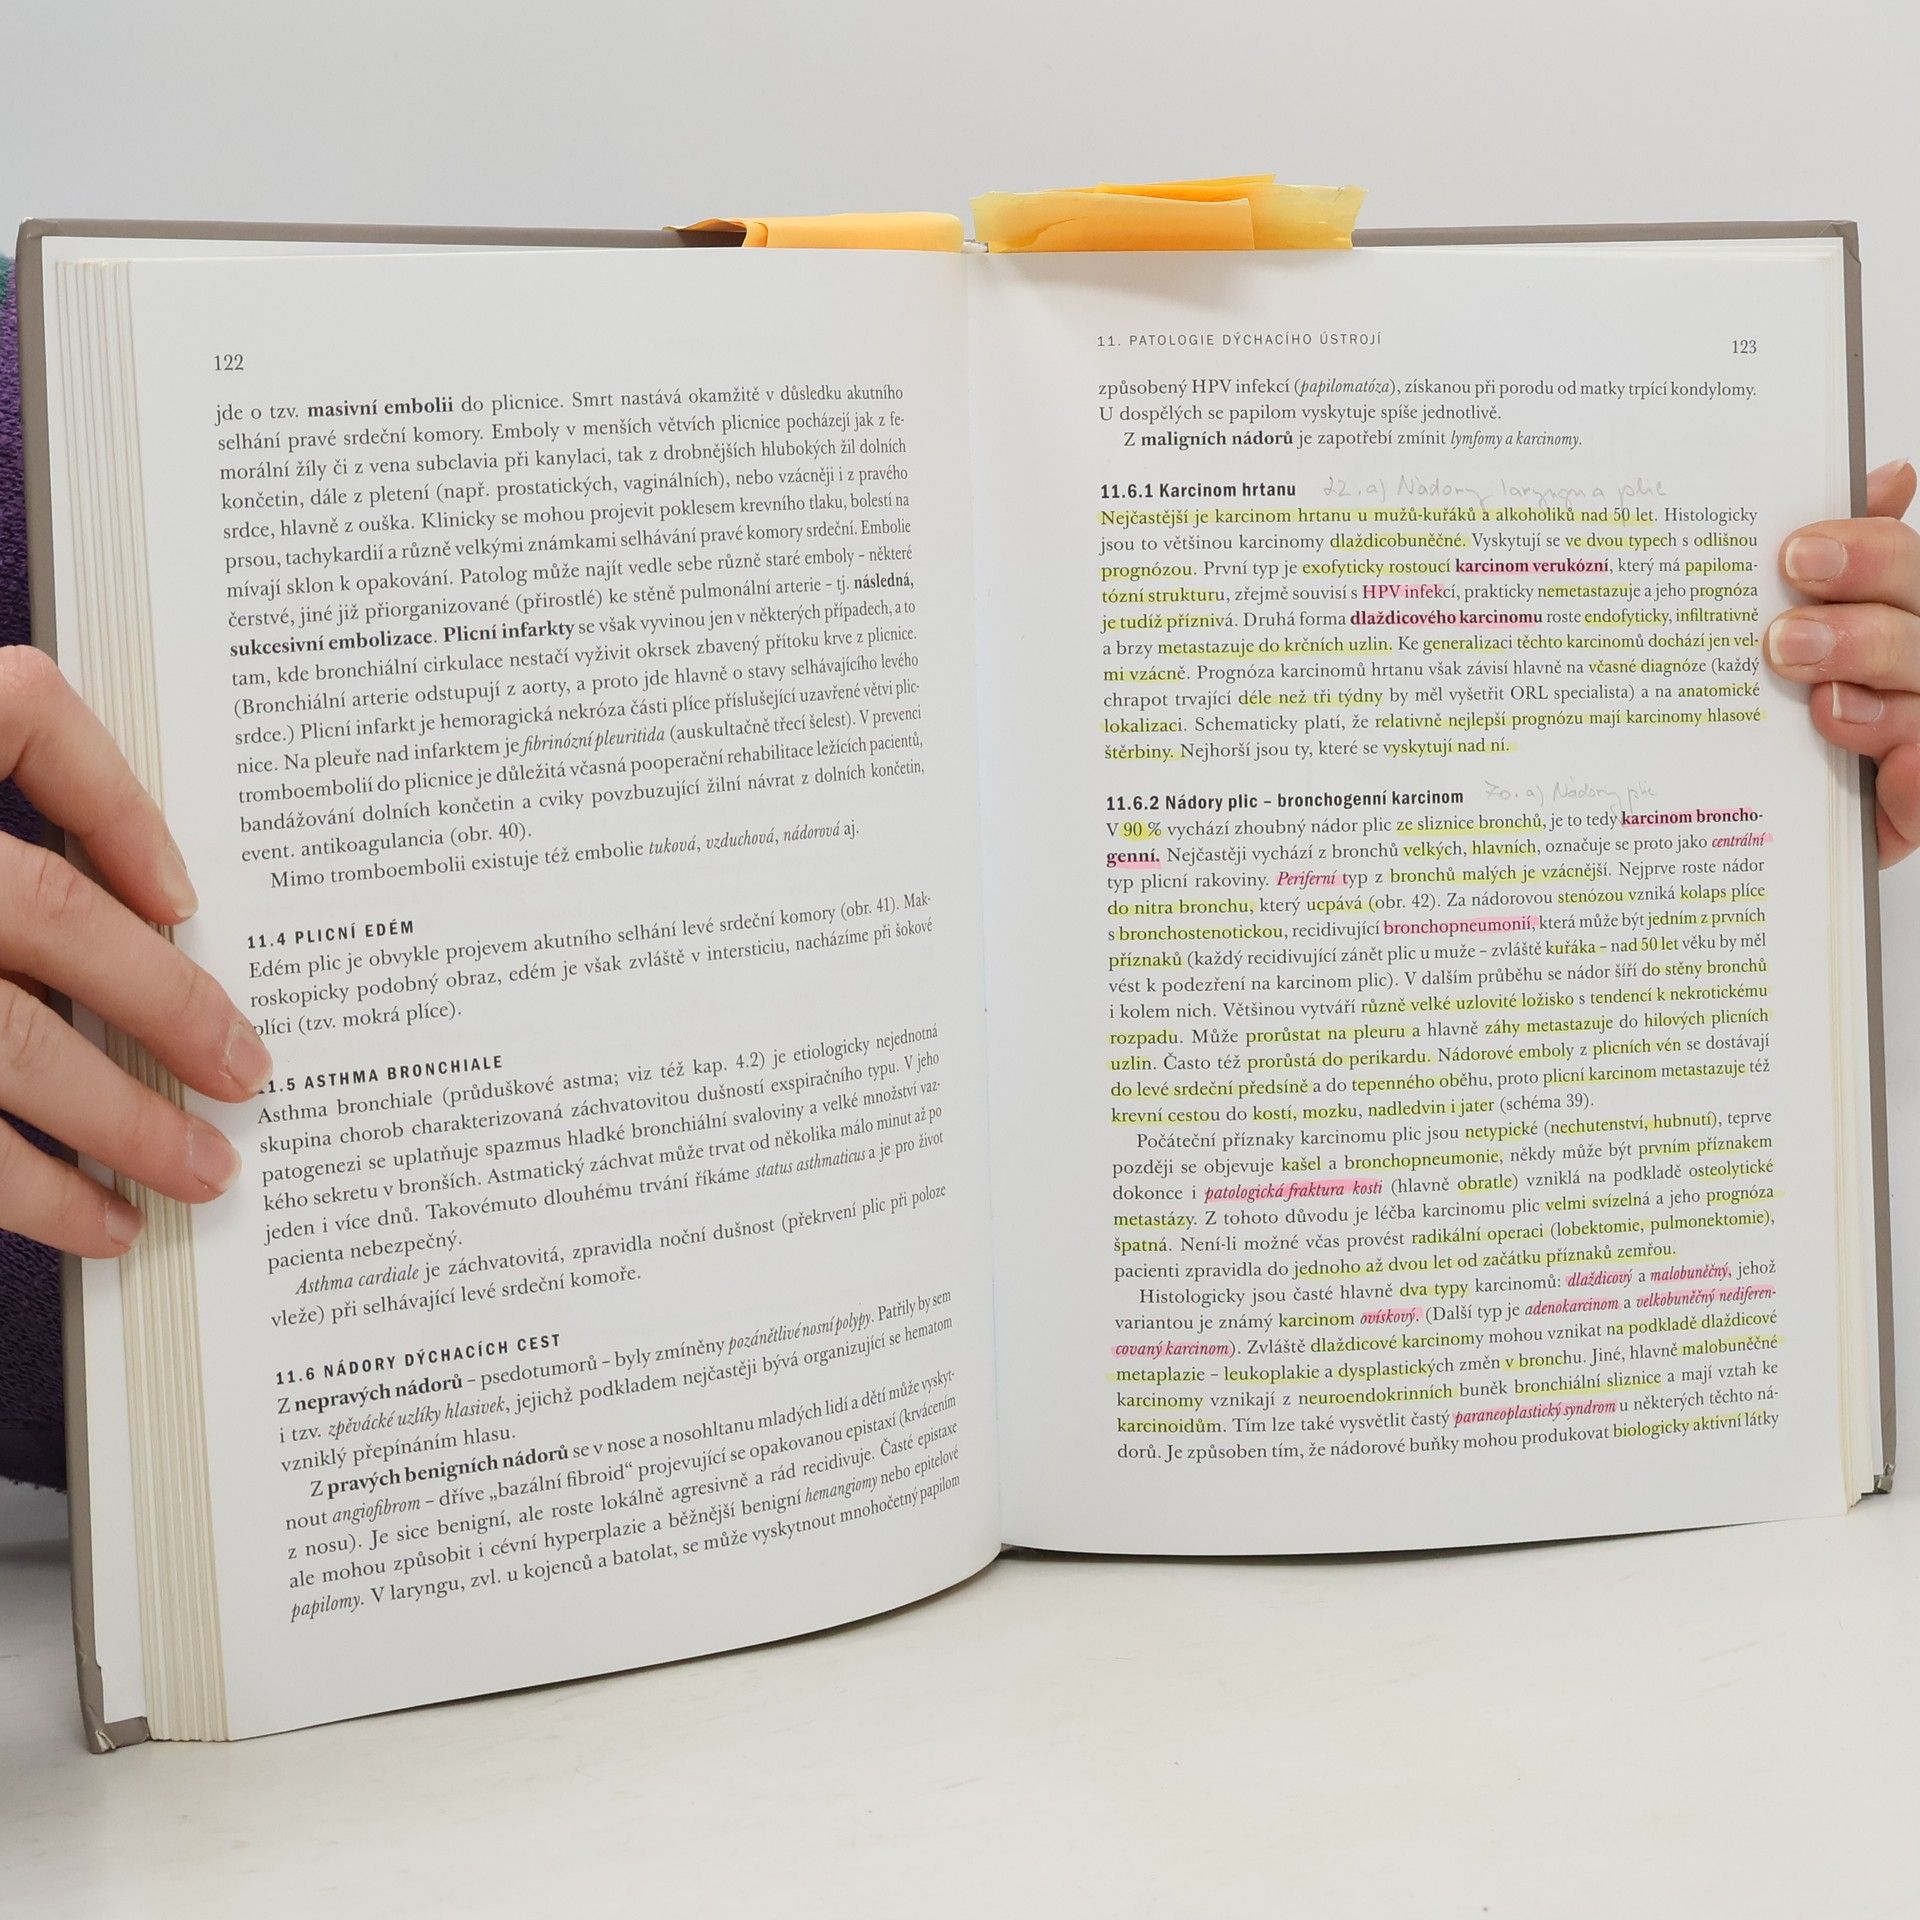 122
jde o tzv. masivní embolii do plicnice. Smrt nastává okamžitě v důsledku akutního
selhání pravé srdeční komory. Emboly v menších větvích plicnice pocházejí jak z fe-
morální žíly či z vena subclavia při kanylaci, tak z drobnějších hlubokých žil dolních
končetin, dále z pletení (např. prostatických, vaginálních), nebo vzácněji i z pravého
srdce, hlavně z ouška. Klinicky se mohou projevit poklesem krevního tlaku, bolestí na
prsou, tachykardií a různě velkými známkami selhávání pravé komory srdeční. Embolie
mívají sklon k opakování. Patolog může najít vedle sebe různě staré emboly – některé
čerstvé, jiné již přiorganizované (přirostlé) ke stěně pulmonální arterie – tj. následná,
sukcesivní embolizace. Plicní infarkty se však vyvinou jen v některých případech, a to
tam, kde bronchiální cirkulace nestačí vyživit okrsek zbavený přítoku krve z plicnice.
(Bronchiální arterie odstupují z aorty, a proto jde hlavně o stavy selhávajícího levého
srdce.) Plicní infarkt je hemoragická nekróza části plíce příslušející uzavřené větvi plic-
nice. Na pleuře nad infarktem je fibrinózní pleuritida (auskultačně třecí šelest). V prevenci
tromboembolií do plicnice je důležitá včasná pooperační rehabilitace ležících pacientů,
bandážování dolních končetin a cviky povzbuzující žilní návrat z dolních končetin,
event. antikoagulancia (obr. 40).
Mimo tromboembolii existuje též embolie tuková, vzduchová, nádorová aj.
11.4 PLICNÍ EDÉM
Edém plic je obvykle projevem akutního selhání levé srdeční komory (obr. 41). Mak-
roskopicky podobný obraz, edém je však zvláště v intersticiu, nacházíme při šokové
plíci (tzv. mokrá plíce).
11.5 ASTHMA BRONCHIALE
Asthma bronchiale (průduškové astma; viz též kap. 4.2) je etiologicky nejednotná
skupina chorob charakterizovaná záchvatovitou dušností exspiračního typu. V jeho
patogenezi se uplatňuje spazmus hladké bronchiální svaloviny a velké množství vaz-
kého sekretu v bronších. Astmatický záchvat může trvat od několika málo minut až po
jeden i více dnů. Takovémuto dlouhému trvání říkáme status asthmaticus a je pro život
pacienta nebezpečný.
Asthma cardiale je záchvatovitá, zpravidla noční dušnost (překrvení plic při poloze
vleže) při selhávající levé srdeční komoře.
11.6 NÁDORY DÝCHACÍCH CEST
Z nepravých nádorů – psedotumorů – byly zmíněny pozánětlivé nosní polypy. Patřily by sem
i tzv. zpěvácké uzlíky hlasivek, jejichž podkladem nejčastěji bývá organizující se hematom
vzniklý přepínáním hlasu.
Z pravých benigních nádorů se v nose a nosohltanu mladých lidí a dětí může vyskyt-
nout angiofibrom – dříve „bazální fibroid“ projevující se opakovanou epistaxí (krvácením
z nosu). Je sice benigní, ale roste lokálně agresivně a rád recidivuje. Časté epistaxe
ale mohou způsobit i cévní hyperplazie a běžnější benigní hemangiomy nebo epitelové
papilomy. V laryngu, zvl. u kojenců a batolat, se může vyskytnout mnohočetný papilom
11. PATOLOGIE DÝCHACÍHO ÚSTROJÍ
123
způsobený HPV infekcí (papilomatóza), získanou při porodu od matky trpící kondylomy.
U dospělých se papilom vyskytuje spíše jednotlivě.
Z maligních nádorů je zapotřebí zmínit lymfomy a karcinomy.
11.6.1 Karcinom hrtanu 22. a) Nádory laryngu a plic
Nejčastější je karcinom hrtanu u mužů-kuřáků a alkoholiků nad 50 let. Histologicky
jsou to většinou karcinomy dlaždicobuněčné. Vyskytují se ve dvou typech s odlišnou
prognózou. První typ je exofyticky rostoucí karcinom verukózní, který má papiloma-
tózní strukturu, zřejmě souvisí s HPV infekcí, prakticky nemetastazuje a jeho prognóza
je tudíž příznivá. Druhá forma dlaždicového karcinomu roste endofyticky, infiltrativně
a brzy metastazuje do krčních uzlin. Ke generalizaci těchto karcinomů dochází jen vel-
mi vzácně. Prognóza karcinomů hrtanu však závisí hlavně na včasné diagnóze (každý
chrapot trvající déle než tři týdny by měl vyšetřit ORL specialista) a na anatomické
lokalizaci. Schematicky platí, že relativně nejlepší prognózu mají karcinomy hlasové
štěrbiny. Nejhorší jsou ty, které se vyskytují nad ní.
11.6.2 Nádory plic – bronchogenní karcinom 70. a) Nádory plic
V 90 % vychází zhoubný nádor plic ze sliznice bronchů, je to tedy karcinom broncho-
genní. Nejčastěji vychází z bronchů velkých, hlavních, označuje se proto jako centrální
typ plicní rakoviny. Periferní typ z bronchů malých je vzácnější. Nejprve roste nádor
do nitra bronchu, který ucpává (obr. 42). Za nádorovou stenózou vzniká kolaps plíce
s bronchostenotickou, recidivující bronchopneumonií, která může být jedním z prvních
příznaků (každý recidivující zánět plic u muže – zvláště kuřáka – nad 50 let věku by měl
vést k podezření na karcinom plic). V dalším průběhu se nádor šíří do stěny bronchů
i kolem nich. Většinou vytváří různě velké uzlovité ložisko s tendencí k nekrotickému
rozpadu. Může prorůstat na pleuru a hlavně záhy metastazuje do hilových plicních
uzlin. Často též prorůstá do perikardu. Nádorové emboly z plicních vén se dostávají
do levé srdeční předsíně a do tepenného oběhu, proto plicní karcinom metastazuje též
krevní cestou do kostí, mozku, nadledvin i jater (schéma 39).
Počáteční příznaky karcinomu plic jsou netypické (nechutenství, hubnutí), teprve
později se objevuje kašel a bronchopneumonie, někdy může být prvním příznakem
dokonce i patologická fraktura kosti (hlavně obratle) vzniklá na podkladě osteolytické
metastázy. Z tohoto důvodu je léčba karcinomu plic velmi svízelná a jeho prognóza
špatná. Není-li možné včas provést radikální operaci (lobektomie, pulmonektomie),
pacienti zpravidla do jednoho až dvou let od začátku příznaků zemřou.
Histologicky jsou časté hlavně dva typy karcinomů: dlaždicový a malobuněčný, jehož
variantou je známý karcinom ovískový. (Další typ je adenokarcinom a velkobuněčný nediferen-
covaný karcinom). Zvláště dlaždicové karcinomy mohou vznikat na podkladě dlaždicové
metaplazie – leukoplakie a dysplastických změn v bronchu. Jiné, hlavně malobuněčné
karcinomy vznikají z neuroendokrinních buněk bronchiální sliznice a mají vztah ke
karcinoidům. Tím lze také vysvětlit častý paraneoplastický syndrom u některých těchto ná-
dorů. Je způsoben tím, že nádorové buňky mohou produkovat biologicky aktivní látky